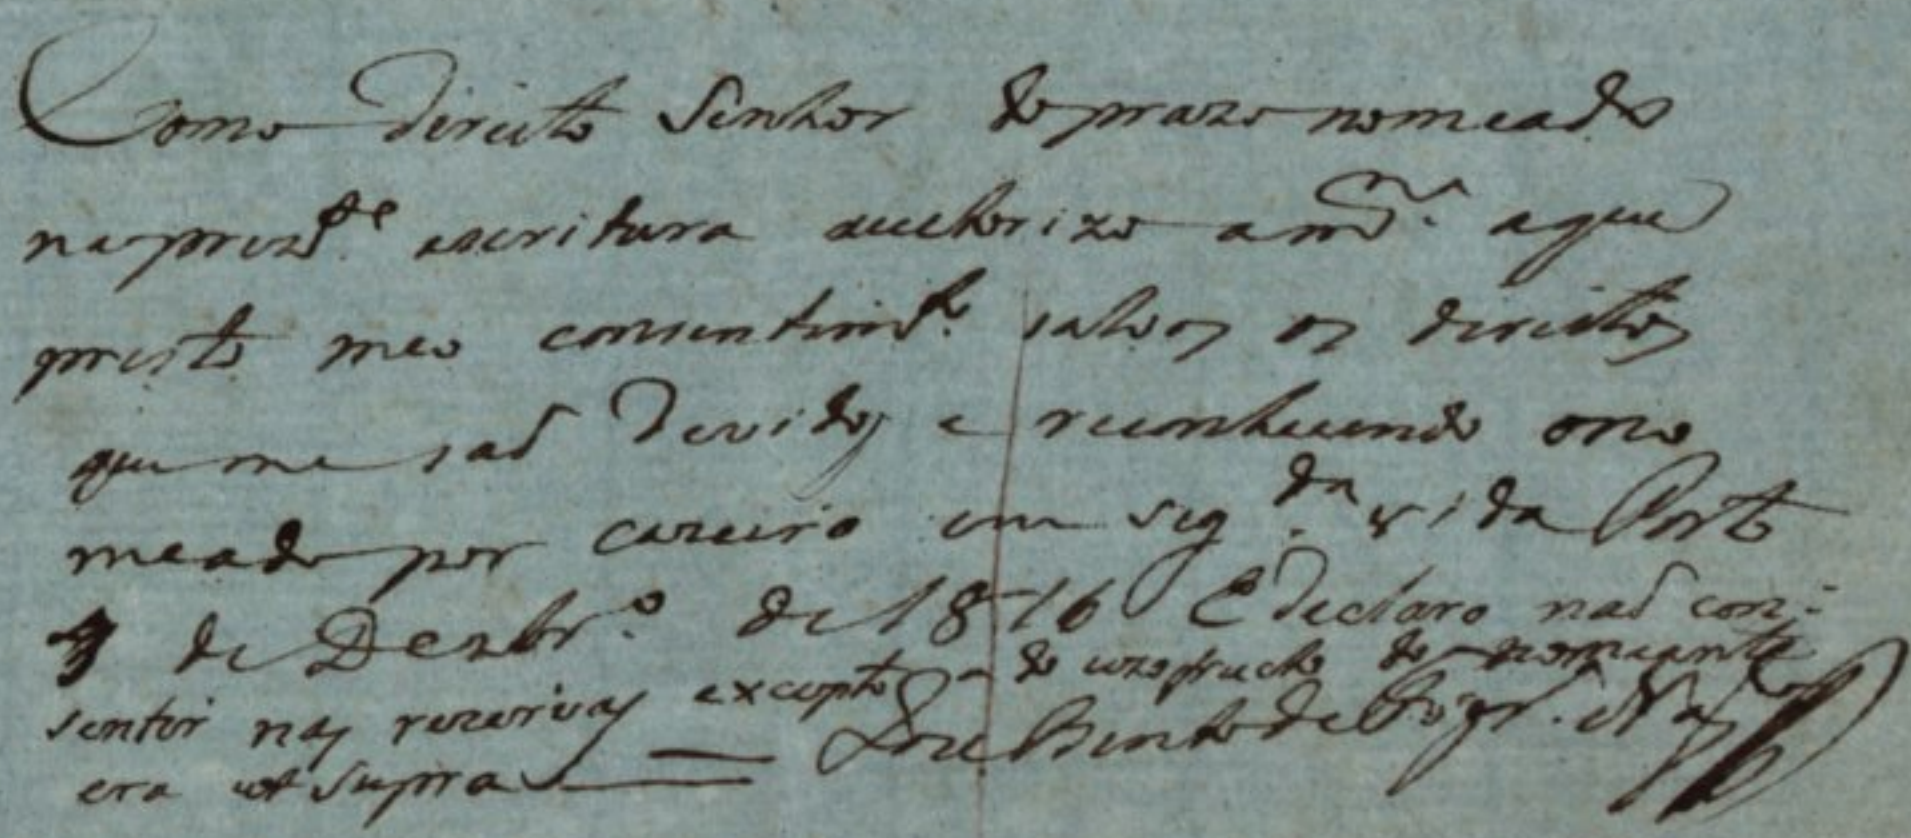 Como direito Senhor do prazo nomeado
na prezte. escritura authorizo a mma. a que
presto meo consentimto. salvos os direitos
que me saõ devidos e reconhecendo o no
meado por cazeiro em segda. vida Porto
3 de Dezbro. de 1816 E declaro naõ con:
sentir nas rezervas excepto a do uzofructo do nomeante
era ut supra Joze Bento de